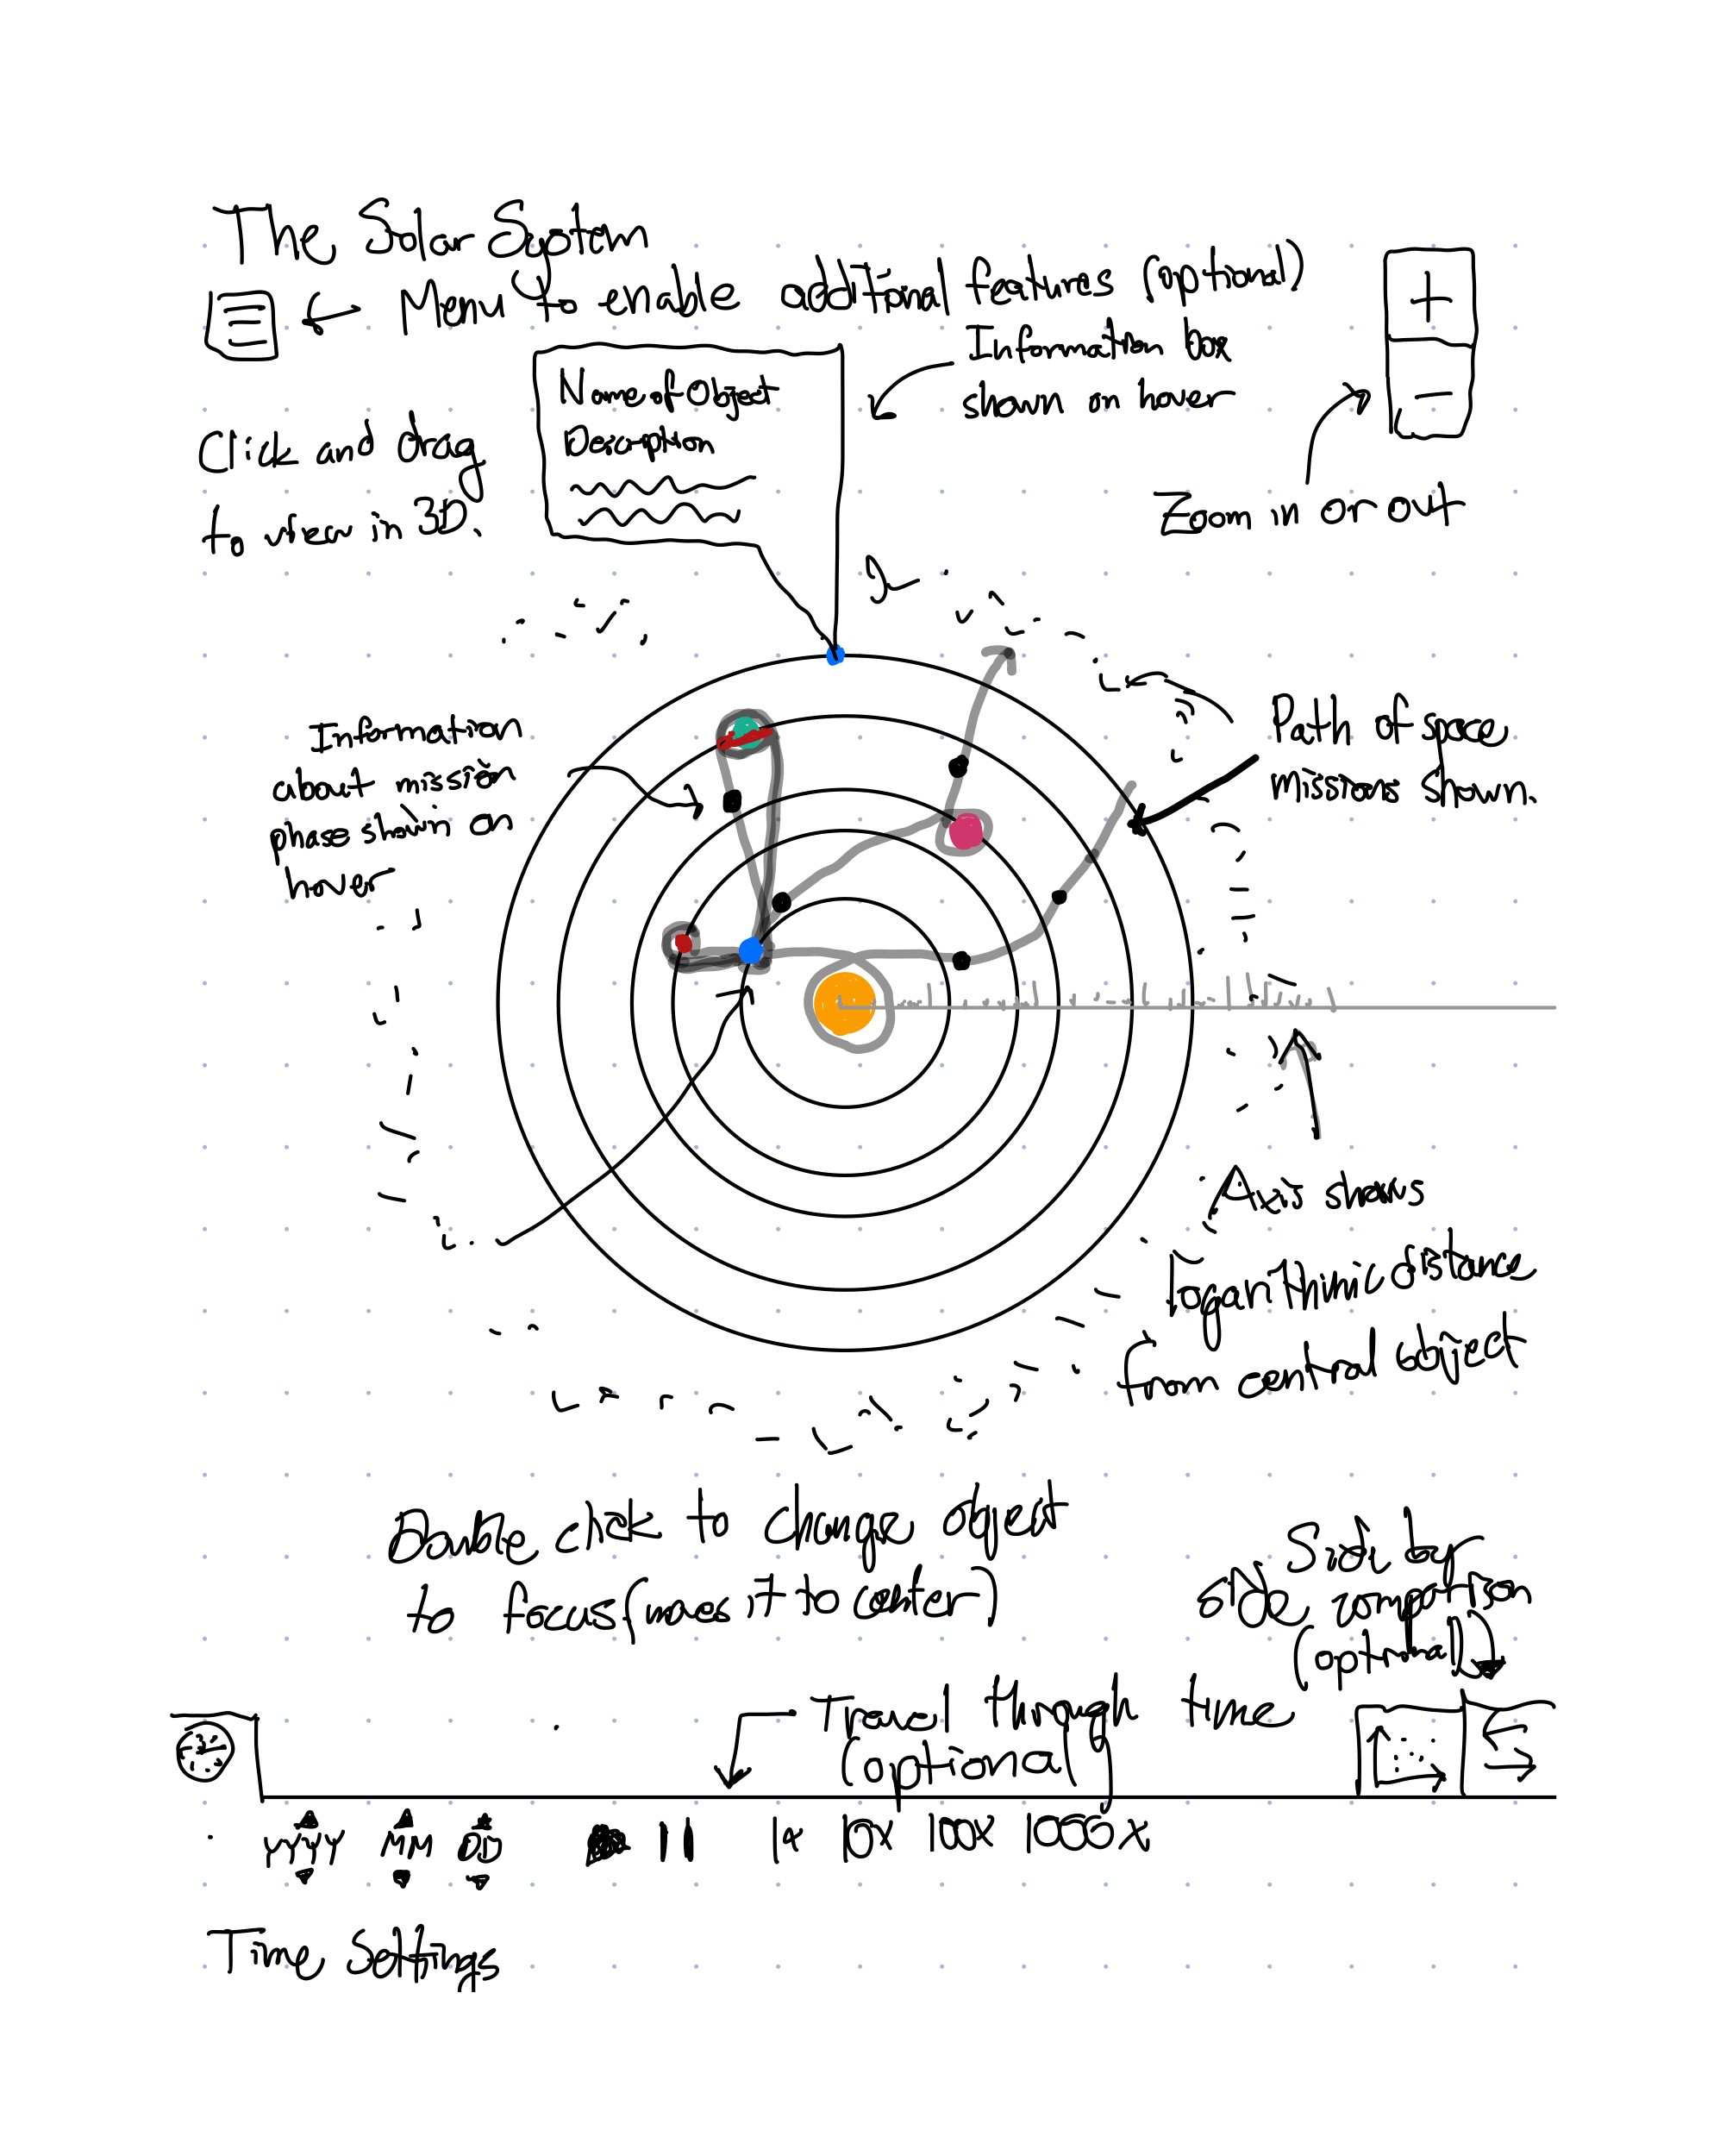 The Solar System
Menu to enable additional features (optional)
Information box
shown on hover
Name of Object
Description
Click and drag
to view in 3D.
+
-
Zoom in or out
Information
about mission
phase shown on
hover
Path of space
missions shown.
Axis shows
logarithmic distance
from central object
Double click to change object
to focus (moves it to center)
Side by
side comparison
(optional)
Travel through time
(optional)
YYYY MM DD 1x 10x 100x 1000x
Time Settings